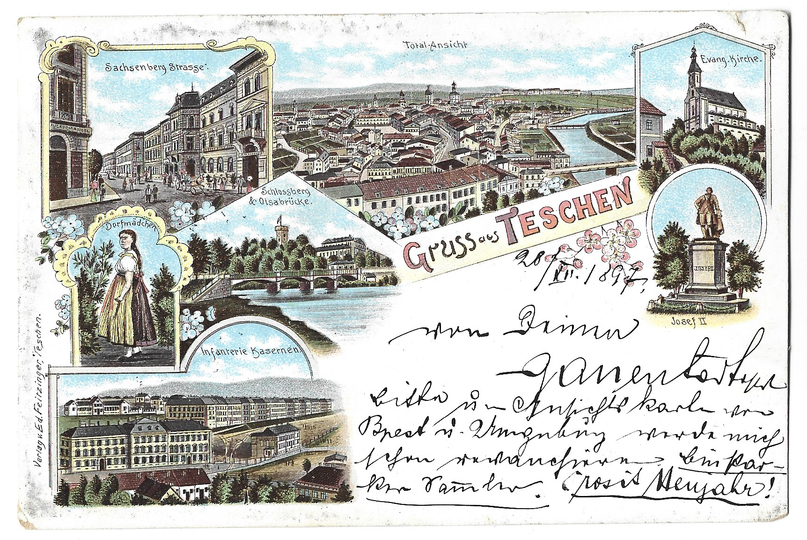 Total-Ansicht
Sachsenberg Strasse.
Evang. Kirche.
Schlossberg
& Olsabrücke.
Gruss aus TESCHEN
Dorfmädchen
JOSEF II
Josef II
Infanterie Kasernen.
Verlag v. Ed. Feitzinger, Teschen.
28/XII. 1897.
von
bitte um Ansichtskarte von
Bpest u. Umgebung werde mich
schon revanchieren bin star-
ker Sammler. Prosit Neujahr!